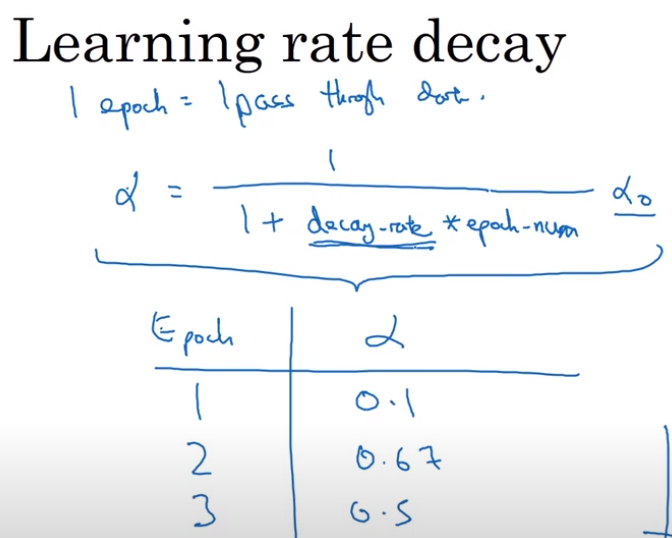 Learning rate decay
1 epoch = 1 pass through dat.
α = 1 / 1 + decay-rate * epoch-num α0
Epoch α
1 0.1
2 0.67
3 0.5